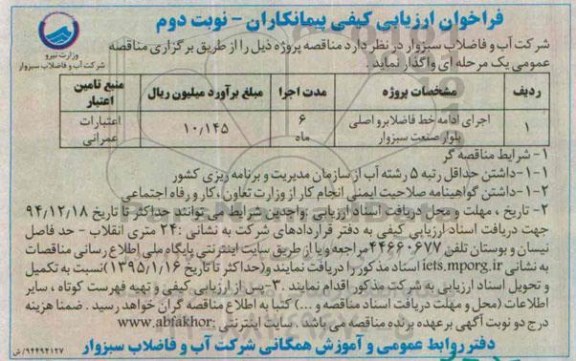 فراخوان ارزیابی کیفی پیمانکاران - نوبت دوم
وزارت نیرو
شرکت آب و فاضلاب سبزوار
شرکت آب و فاضلاب سبزوار در نظر دارد مناقصه پروژه ذیل را از طریق برگزاری مناقصه
عمومی یک مرحله ای واگذار نماید .
ردیف مشخصات پروژه مدت اجرا مبلغ برآورد میلیون ریال منبع تامین اعتبار
۱ اجرای ادامه خط فاضلابرو اصلی بلوار صنعت سبزوار ۶ ماه ۱۰,۱۴۵ اعتبارات عمرانی
۱- شرایط مناقصه گر
۱-۱- داشتن حداقل رتبه ۵ رشته آب از سازمان مدیریت و برنامه ریزی کشور
۱-۲- داشتن گواهینامه صلاحیت ایمنی انجام کار از وزارت تعاون ، کار و رفاه اجتماعی
۲- تاریخ ، مهلت و محل دریافت اسناد ارزیابی :واجدین شرایط می توانند حداکثر تا تاریخ ۹۴/۱۲/۱۸
جهت دریافت اسناد ارزیابی کیفی به دفتر قراردادهای شرکت به نشانی : ۲۴ متری انقلاب - حد فاصل
نیسان و بوستان تلفن ۴۴۶۶۰۶۷۷ مراجعه و یا از طریق سایت اینترنتی پایگاه ملی اطلاع رسانی مناقصات
به نشانی iets.mporg.ir اسناد مذکور را دریافت نمایند و (حداکثر تا تاریخ ۱۳۹۵/۱/۱۶) نسبت به تکمیل
و تحویل اسناد ارزیابی به شرکت مذکور اقدام نمایند . ۳-پس از ارزیابی کیفی و تهیه فهرست کوتاه ، سایر
اطلاعات (محل و مهلت دریافت اسناد مناقصه و ...) کتبا به اطلاع مناقصه گران خواهد رسید . ضمنا هزینه
درج دو نوبت آگهی برعهده برنده مناقصه می باشد . سایت اینترنتی :www.abfakhor
دفتر روابط عمومی و آموزش همگانی شرکت آب و فاضلاب سبزوار
۹۴۴۹۴۱۲۷/ش